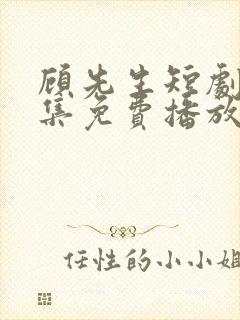 顾先生短劇
集免費播放
任性的小小姐